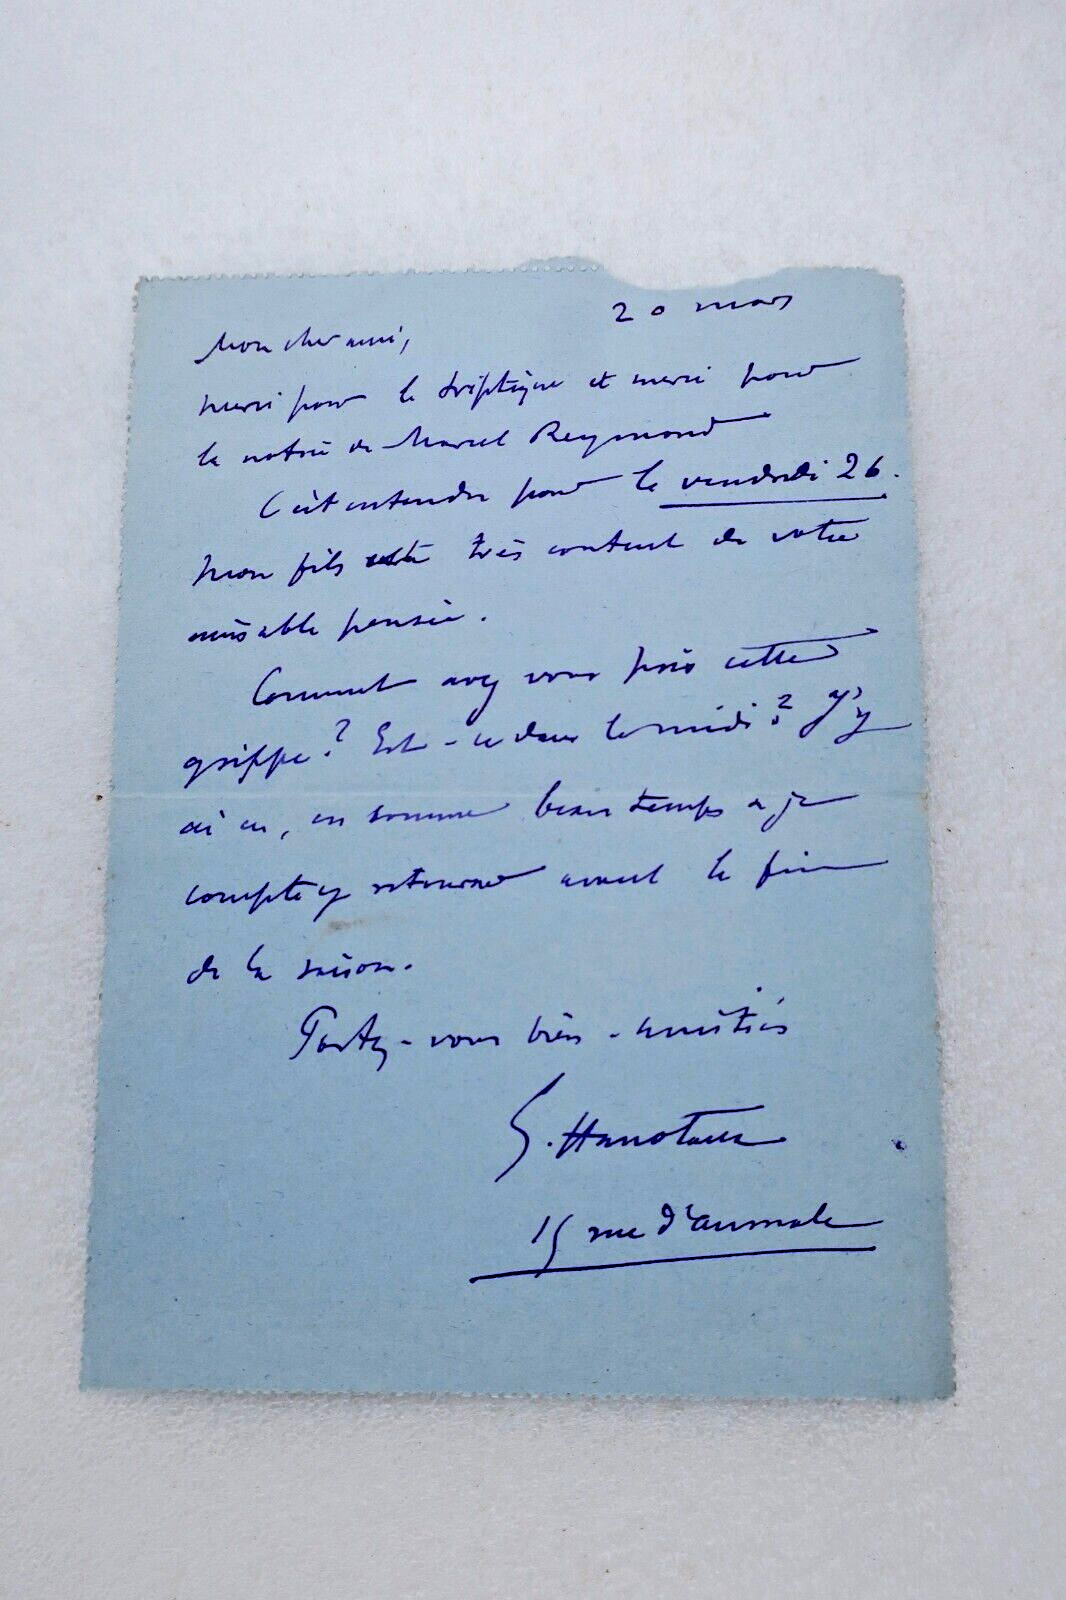 20 mars
Mon cher ami,
merci pour le triptyque et merci pour
la notice de Marcel Reymond
C'est entendu pour le vendredi 26.
Mon fils très content de votre
aimable pensée.
Comment avez vous pris cette
grippe? Est-ce dans le midi? J'y
ai eu, en somme beau temps et je
compte y retourner avant la fin
de la saison.
Portez-vous bien - amitiés
G. Hanotaux
15 rue d'aumale